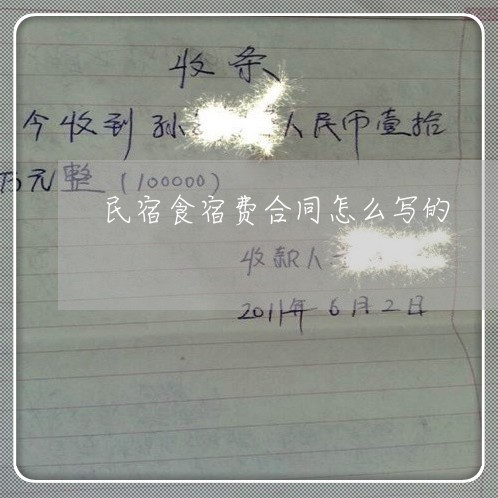 收条
今收到孙 人民币壹拾
万元整(100000)
民宿食宿费合同怎么写的
收款人
2011年6月2日